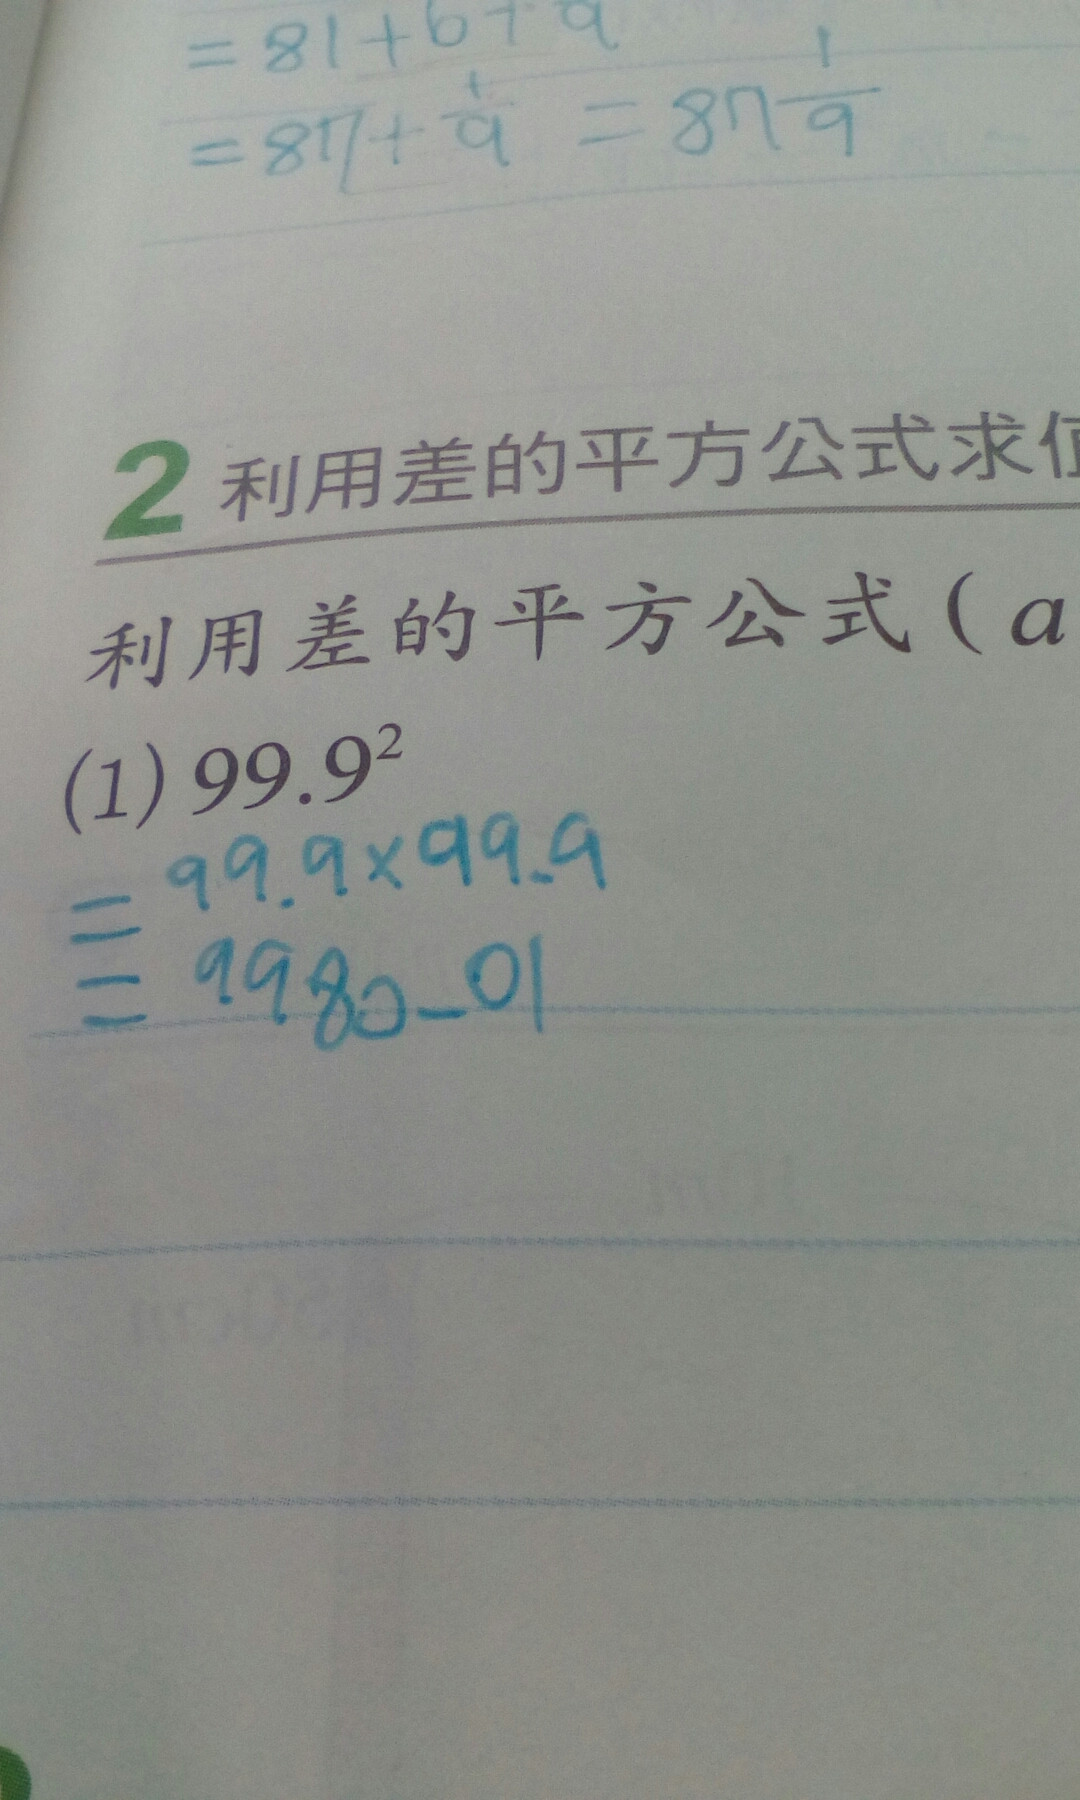 = 81+6+
= 87+1/9 = 87 1/9
2 利用差的平方公式求值
利用差的平方公式(a
(1) 99.9²
= 99.9×99.9
= 9980.01